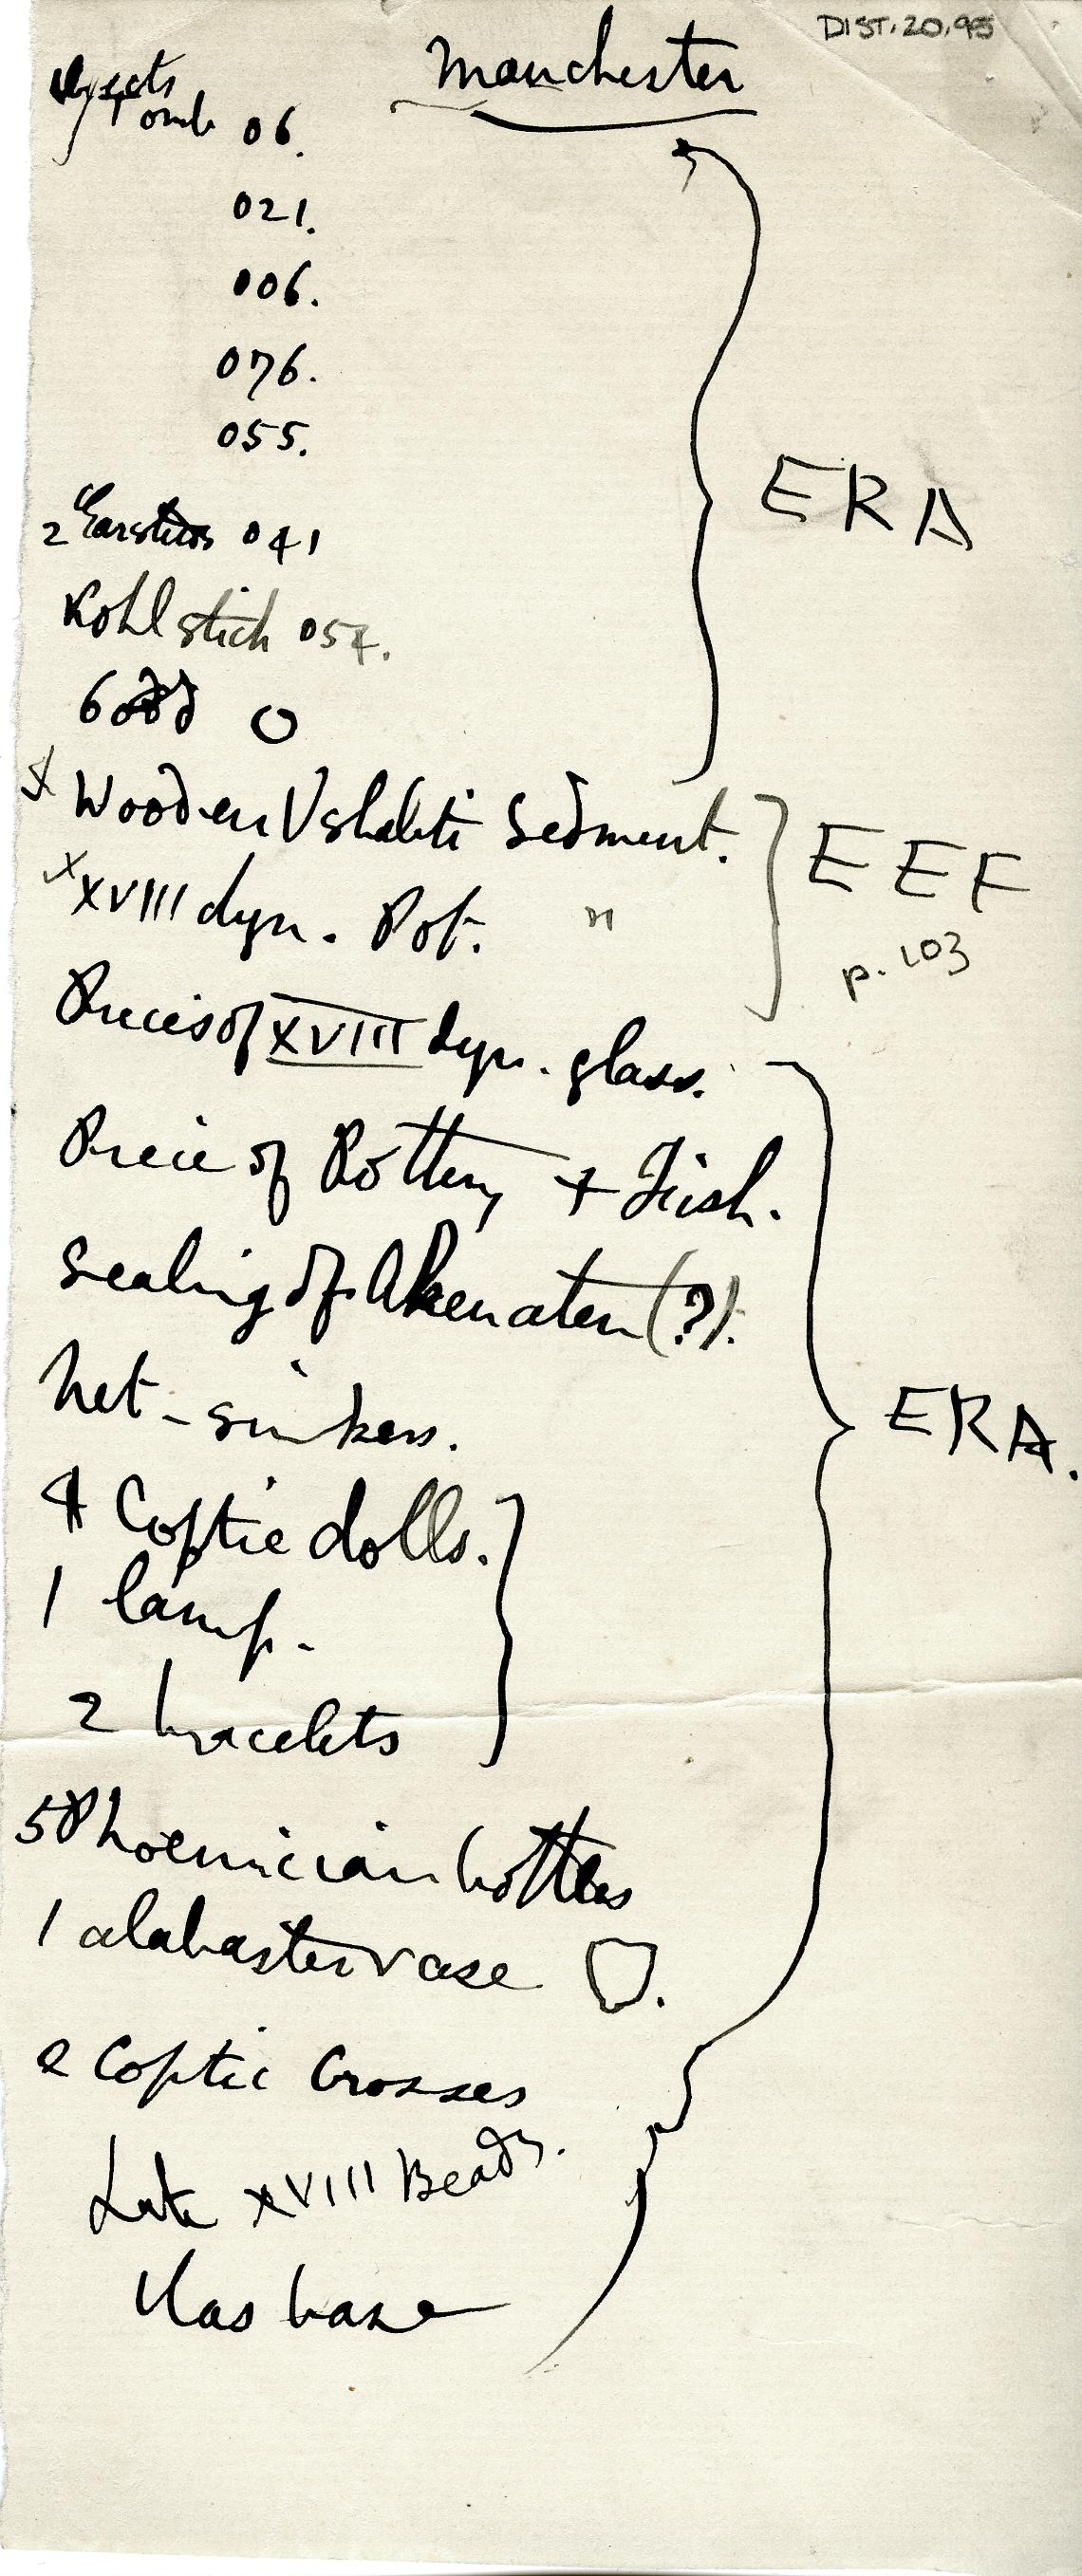 DIST.20.95
Manchester
Objects
Tomb 06.
021.
006.
076.
055.
ERA
2 Earstuds 041
Kohl stick 057.
6 odd
x Wooden Ushabti Sedment.
EEF
x XVIII dyn. Pot. "
p. 103
Pieces of XVIII dyn. glass.
Piece of Pottery + Fish.
Sealing of Akenaten (?).
Net-sinkers.
ERA.
4 Coptic dolls.
1 lamp.
2 bracelets
5 Phoenician bottles
1 alabaster vase
2 Coptic Crosses
Late XVIII Beads.
base